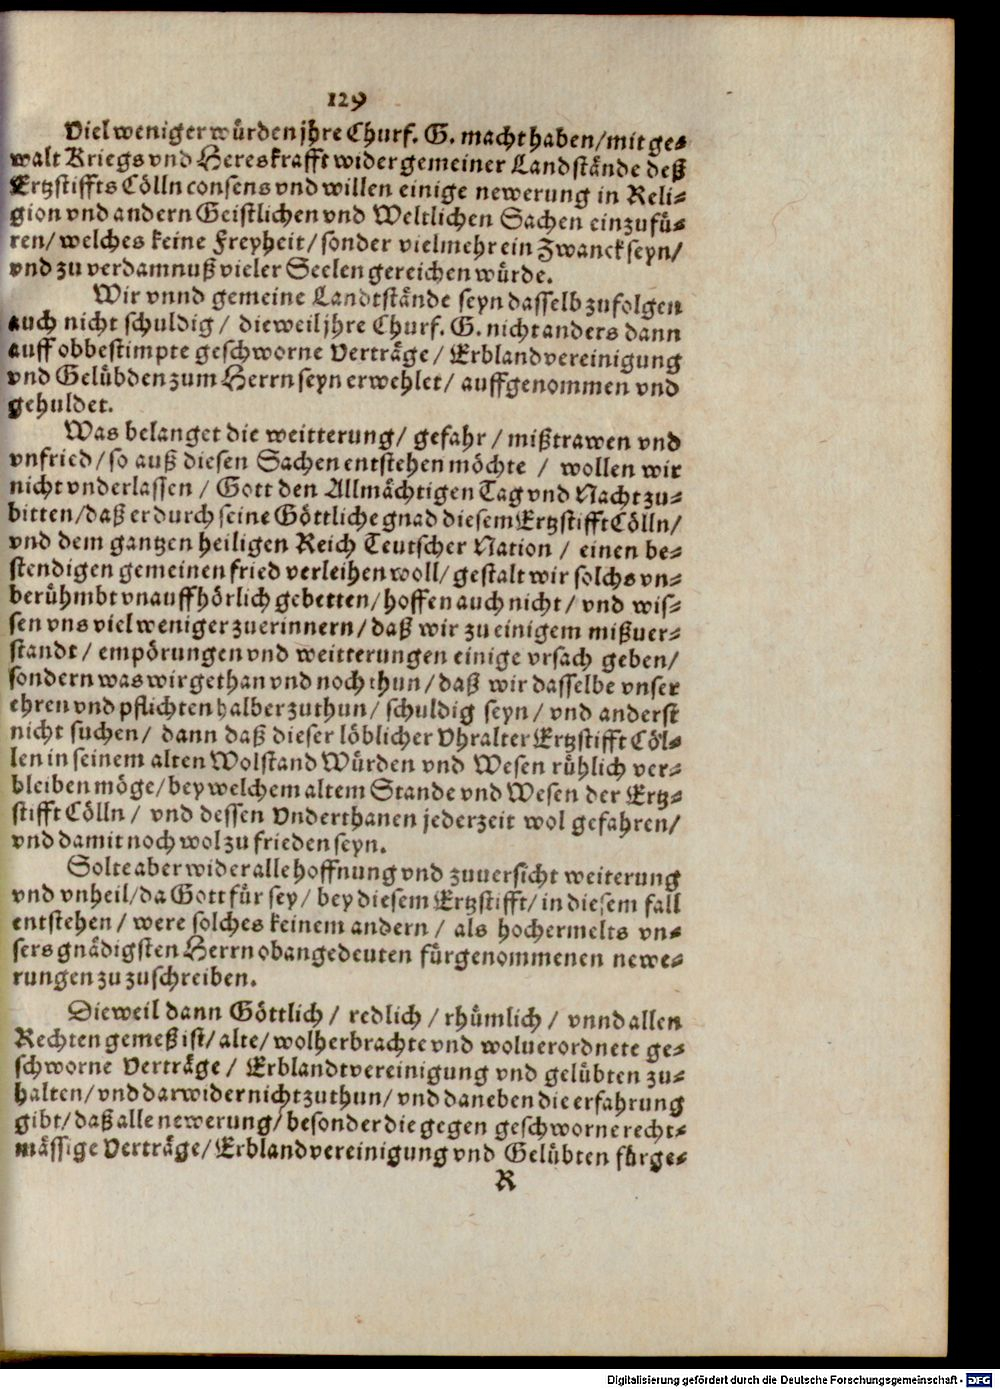 129
Viel weniger würden jhre Churf. G. macht haben/ mit ge-
walt Kriegs vnd Hereskrafft wider gemeiner Landstände deß
Ertzstiffts Cölln consens vnd willen einige newerung in Reli-
gion vnd andern Geistlichen vnd Weltlichen Sachen einzufü-
ren/ welches keine Freyheit/ sonder vielmehr ein Zwanck seyn/
vnd zu verdamnuß vieler Seelen gereichen würde.
Wir vnnd gemeine Landtstände seyn dasselb zufolgen
auch nicht schuldig/ dieweil jhre Churf. G. nicht anders dann
auff obbestimpte geschworne Verträge/ Erblandvereinigung
vnd Gelübden zum Herrn seyn erwehlet/ auffgenommen vnd
gehuldet.
Was belanget die weitterung/ gefahr/ mißtrawen vnd
vnfried/ so auß diesen Sachen entstehen möchte/ wollen wir
nicht vnderlassen/ Gott den Allmächtigen Tag vnd Nacht zu-
bitten/ daß er durch seine Göttliche gnad diesem Ertzstifft Cölln/
vnd dem gantzen heiligen Reich Teutscher Nation/ einen be-
stendigen gemeinen fried verleihen woll/ gestalt wir solchs vn-
berühmbt vnauffhörlich gebetten/ hoffen auch nicht/ vnd wis-
sen vns viel weniger zuerinnern/ daß wir zu einigem mißuer-
standt/ empörungen vnd weitterungen einige vrsach geben/
sondern was wir gethan vnd noch thun/ daß wir dasselbe vnser
ehren vnd pflichten halber zuthun/ schuldig seyn/ vnd anderst
nicht suchen/ dann daß dieser löblicher Vhralter Ertzstifft Cöl-
len in seinem alten Wolstand Würden vnd Wesen rühlich ver-
bleiben möge/ bey welchem altem Stande vnd Wesen der Ertz-
stifft Cölln/ vnd dessen Vnderthanen jederzeit wol gefahren/
vnd damit noch wol zu frieden seyn.
Solte aber wider alle hoffnung vnd zuuersicht weiterung
vnd vnheil/ da Gott für sey/ bey diesem Ertzstifft/ in diesem fall
entstehen/ were solches keinem andern/ als hochermelts vn-
sers gnädigsten Herrn obangedeuten fürgenommenen newe-
rungen zu zuschreiben.
Dieweil dann Göttlich/ redlich/ rhümlich/ vnnd allen
Rechten gemeß ist/ alte/ wolherbrachte vnd woluerordnete ge-
schworne Verträge/ Erblandtvereinigung vnd gelübten zu-
halten/ vnd darwider nicht zuthun/ vnd daneben die erfahrung
gibt/ daß alle newerung/ besonder die gegen geschworne recht-
mässige Verträge/ Erblandvereinigung vnd Gelübten fürge-
R
Digitalisierung gefördert durch die Deutsche Forschungsgemeinschaft - DFG